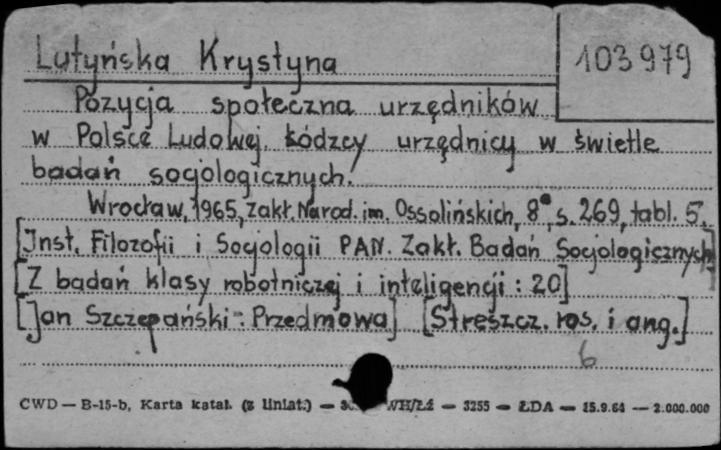 Lutyńska Krystyna
103979
Pozycja społeczna urzędników
w Polsce Ludowej. Łódzcy urzędnicy w świetle
badań socjologicznych.
Wrocław, 1965, Zakł. Narod. im. Ossolińskich, 8°, s. 269, tabl. 5.
[Inst. Filozofii i Socjologii PAN. Zakł. Badań Socjologicznych]
[Z badań klasy robotniczej i inteligencji : 20]
[Jan Szczepański : Przedmowa] [Streszcz. ros. i ang.]
6
CWD — B-15-b, Karta katal. (z liniat.) — WH/Łź — 3255 — ŁDA — 15.9.64 — 2.000.000